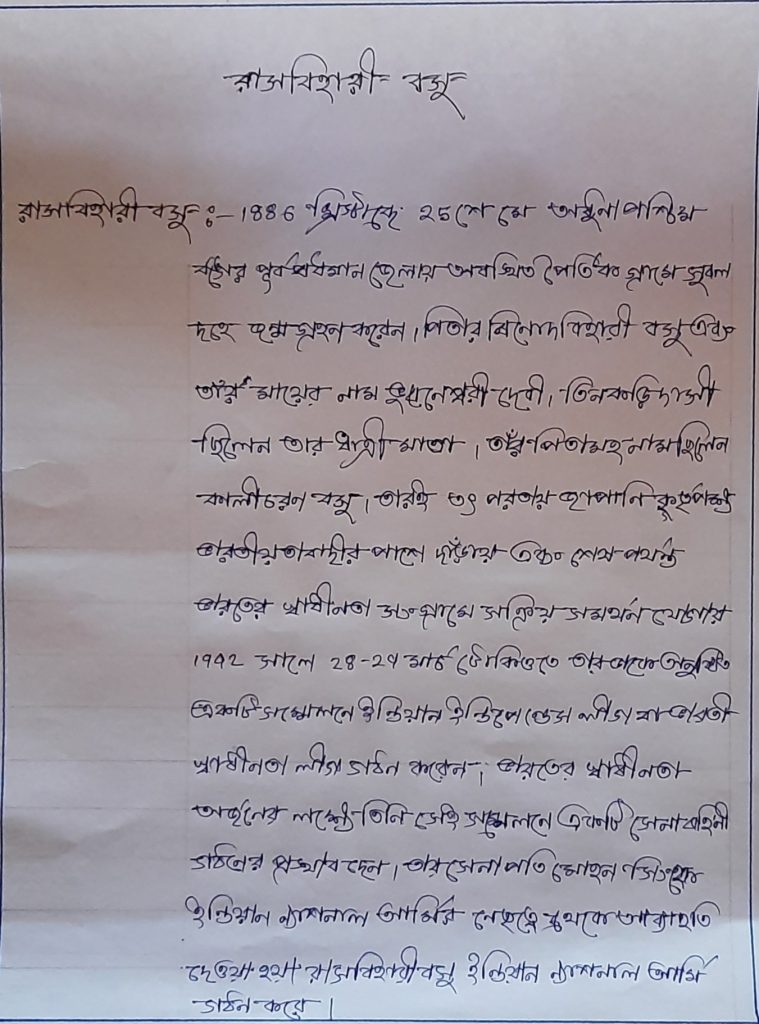 রাসবিহারী বসু
রাসবিহারী বসু :- 1886 খ্রিস্টাব্দে 25 শে মে অধুনা পশ্চিম
বঙ্গের পূর্ব বর্ধমান জেলায় অবস্থিত পৈতিক গ্রামে সুবল
দহে জন্ম গ্রহন করেন। পিতার বিনোদবিহারী বসু এবং
তাঁর মায়ের নাম ভুবনেশ্বরী দেবী। তিনকড়ি দাসী
ছিলেন তার ধাত্রী মাতা। তাঁর পিতামহ নাম ছিলেন
কালীচরন বসু। তারই তৎ পরতায় জাপানি কতৃপক্ষ
ভারতীয়তাবাদীর পাশে দাঁড়ায় এবং শেষ পর্যন্ত
ভারতের স্বাধীনতা সংগ্রামে সক্রিয় সমর্থন যোগায়
1942 সালে 28-29 মার্চ টোকিওতে তার ডাকে অনুষ্ঠিত
একটি সম্মেলনে ইন্ডিয়ান ইন্ডিপেন্ডেন্স লীগ বা ভারতী
স্বাধীনতা লীগ গঠন করেন। ভারতের স্বাধীনতা
অর্জনের লক্ষ্যে তিনি সেই সম্মেলনে একটি সেনাবাহিনী
গঠনের প্রস্তাব দেন। তার সেনাপতি মোহন সিংকে
ইন্ডিয়ান ন্যাশনাল আর্মির নেতৃত্ব থেকে অব্যাহতি
দেওয়া হয়। রাসবিহারী বসু ইন্ডিয়ান ন্যাশনাল আর্মি
গঠন করে।